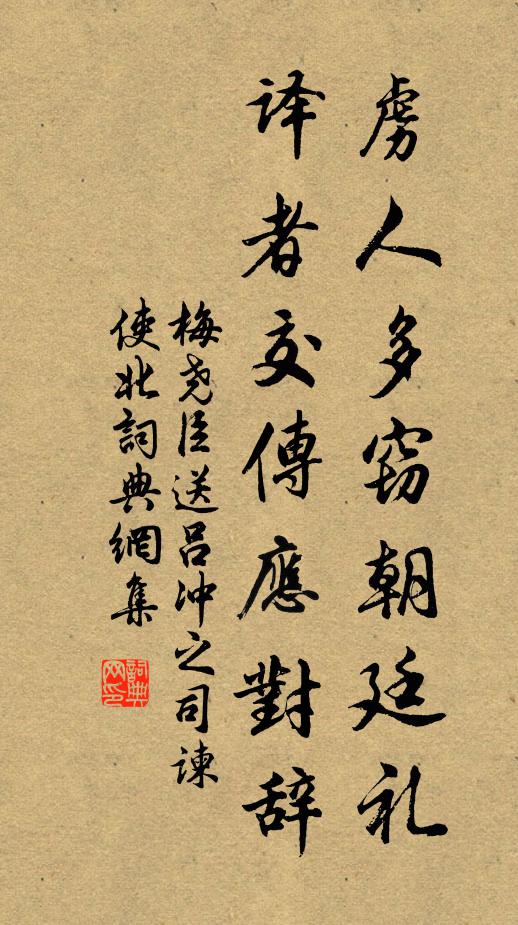 虏人多窃朝廷礼
译者交傳應對辞
梅尧臣送吕冲之司谏
使北詞典網集
詞典网印